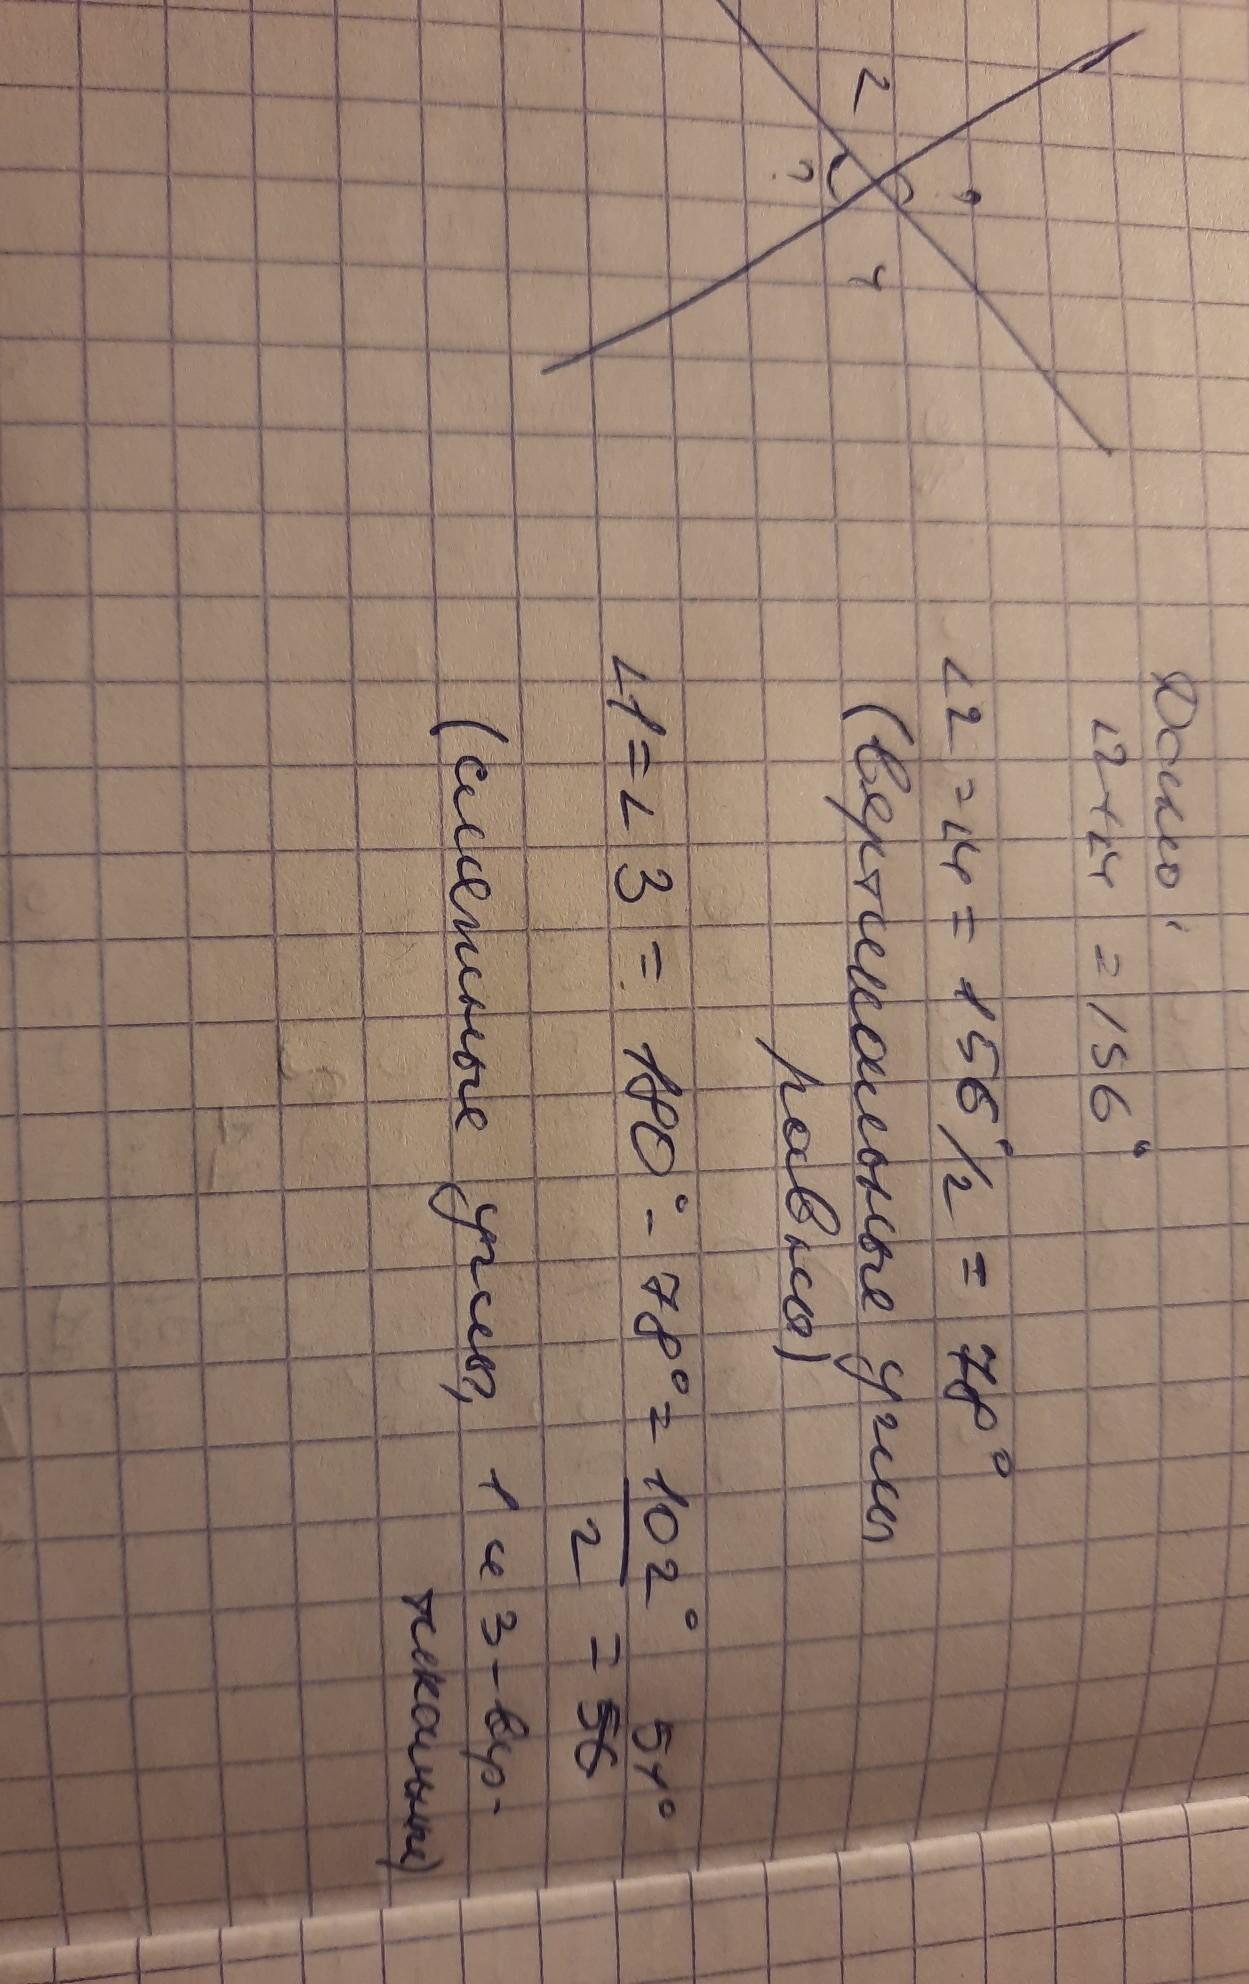 2
?
?
4
Дано:
∠2+∠4 = 156°
∠2=∠4 = 156°/2 = 78°
(вертикальные углы
равны)
∠1=∠3 = 180°-78°= 102°/2 = 51°
(смежные углы, 1 и 3-вер-
тикальные)